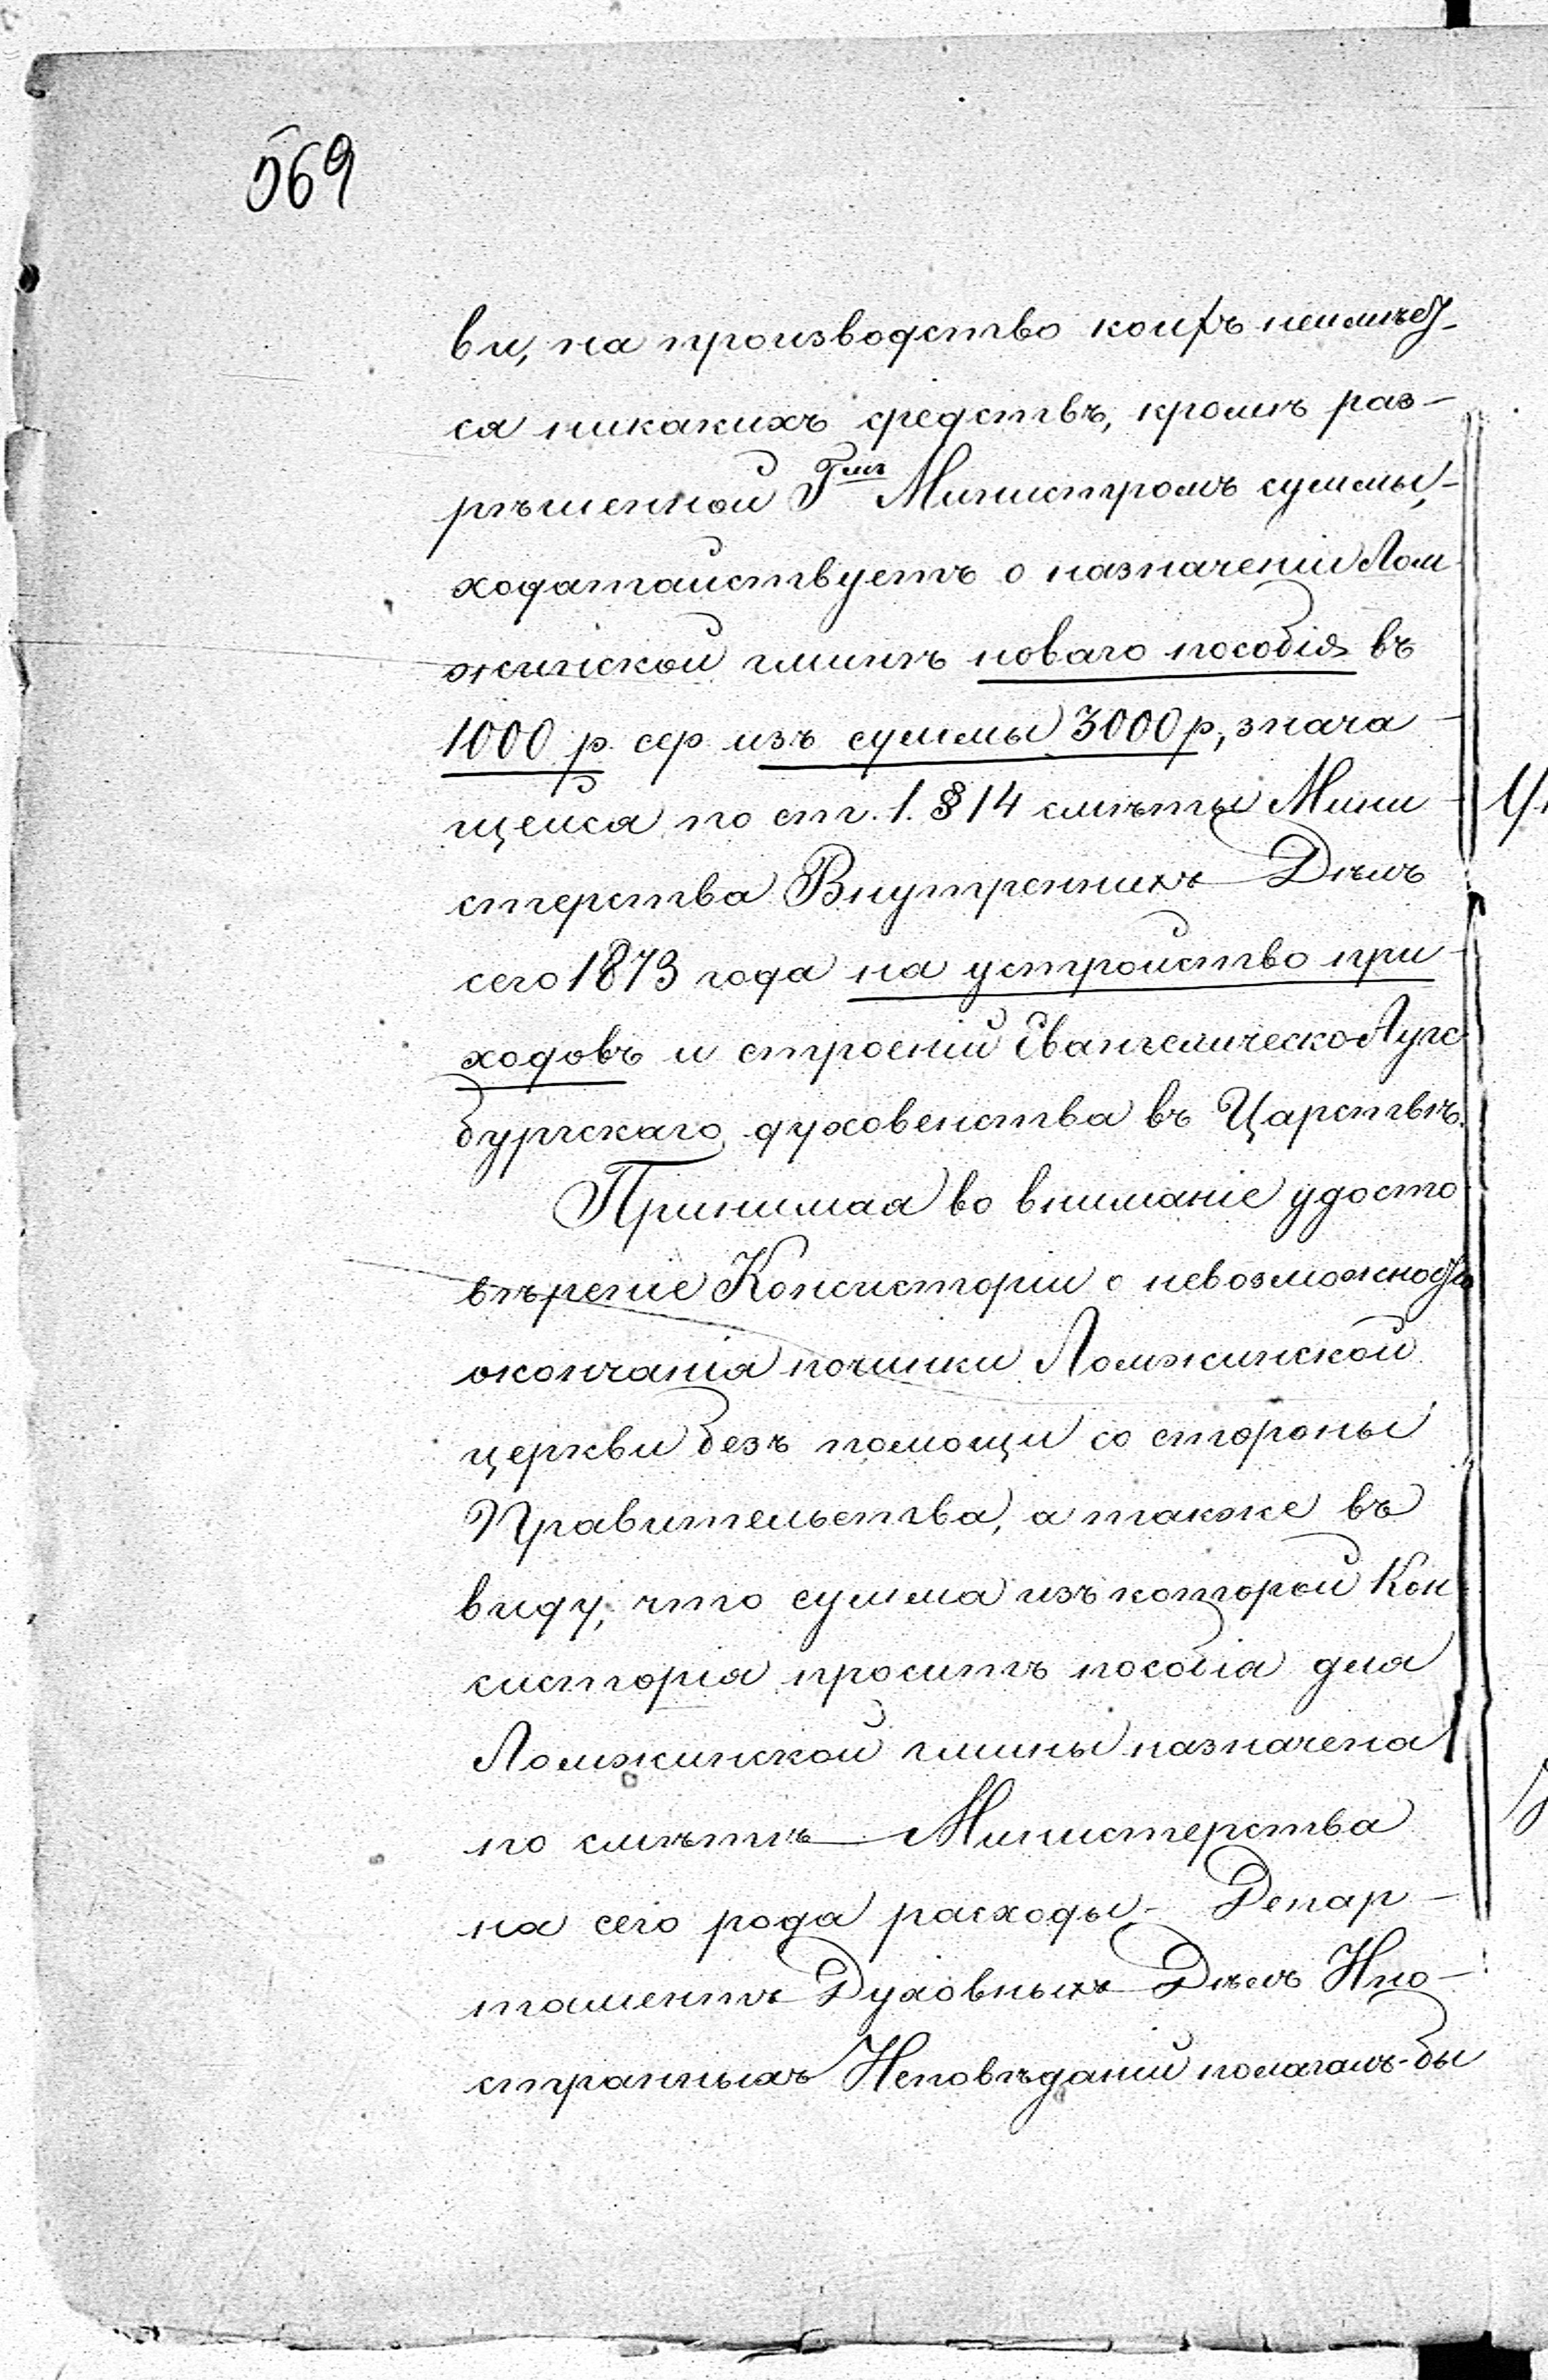 569
ви, на производство коихъ неимѣет-
ся никакихъ средствъ, кромѣ раз-
рѣшенной Гмъ Министромъ суммы,-
ходатайствуетъ о назначеніи Лом
жинской гминѣ новаго пособія въ
1000 р. сер. изъ суммы 3000 р, знача-
щейся по ст. 1. § 14 смѣты Мини-
стерства Внутреннихъ Дѣлъ
сего 1873 года на устройство при-
ходовъ и строеній Евангелическо Аугс
бургскаго духовенства въ Царствѣ.
Принимая во вниманіе удосто
вѣреніе Консисторіи о невозможности
окончанія починки Ломжинской
церкви безъ помощи со стороны
Правительства, а также въ
виду, что сумма изъ которой Кон
систорія проситъ пособія для
Ломжинской гмины назначена
по смѣтѣ Министерства
на сего рода расходы,- Депар-
таментъ Духовныхъ Дѣлъ Ино-
странныхъ Исповѣданій полагалъ-бы